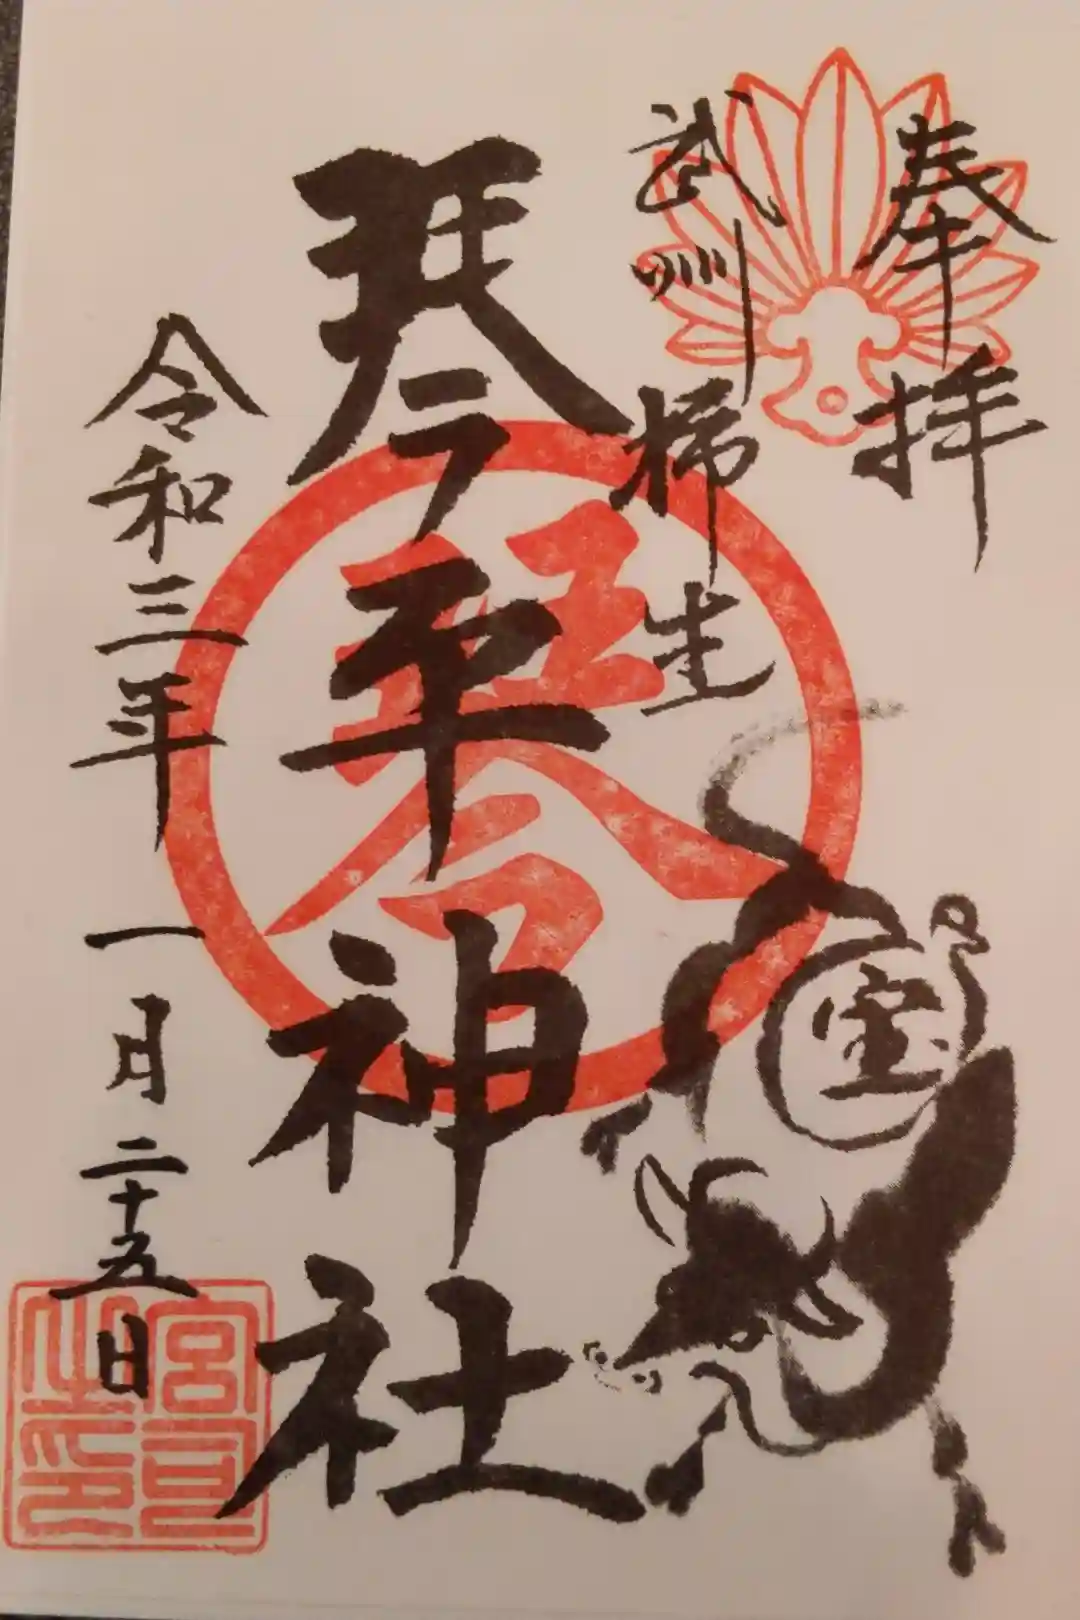 奉拝
武州柿生
琴平神社
令和三年一月二十五日
宝
琴
宮司之印